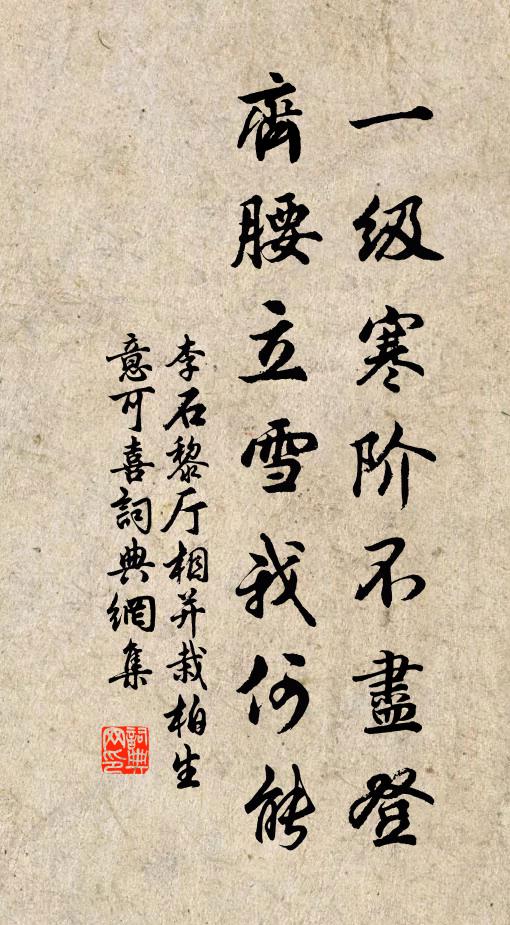 一级寒阶不盡登
齊腰立雪我何能
李石黎厅相并栽柏生
意可喜詞典網集
詞典网印